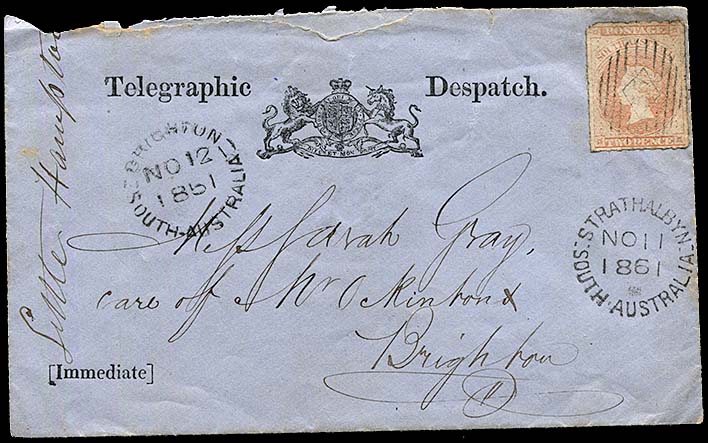 Telegraphic Despatch.
POSTAGE
TWO PENCE
DIEU ET MON DROIT
BRIGHTON
NO 12
1861
SOUTH-AUSTRALIA
STRATHALBYN
NO 11
1861
SOUTH-AUSTRALIA
Miss Sarah Gray,
care of Mr Ockinton
Brighton
[Immediate]
Little Hampton